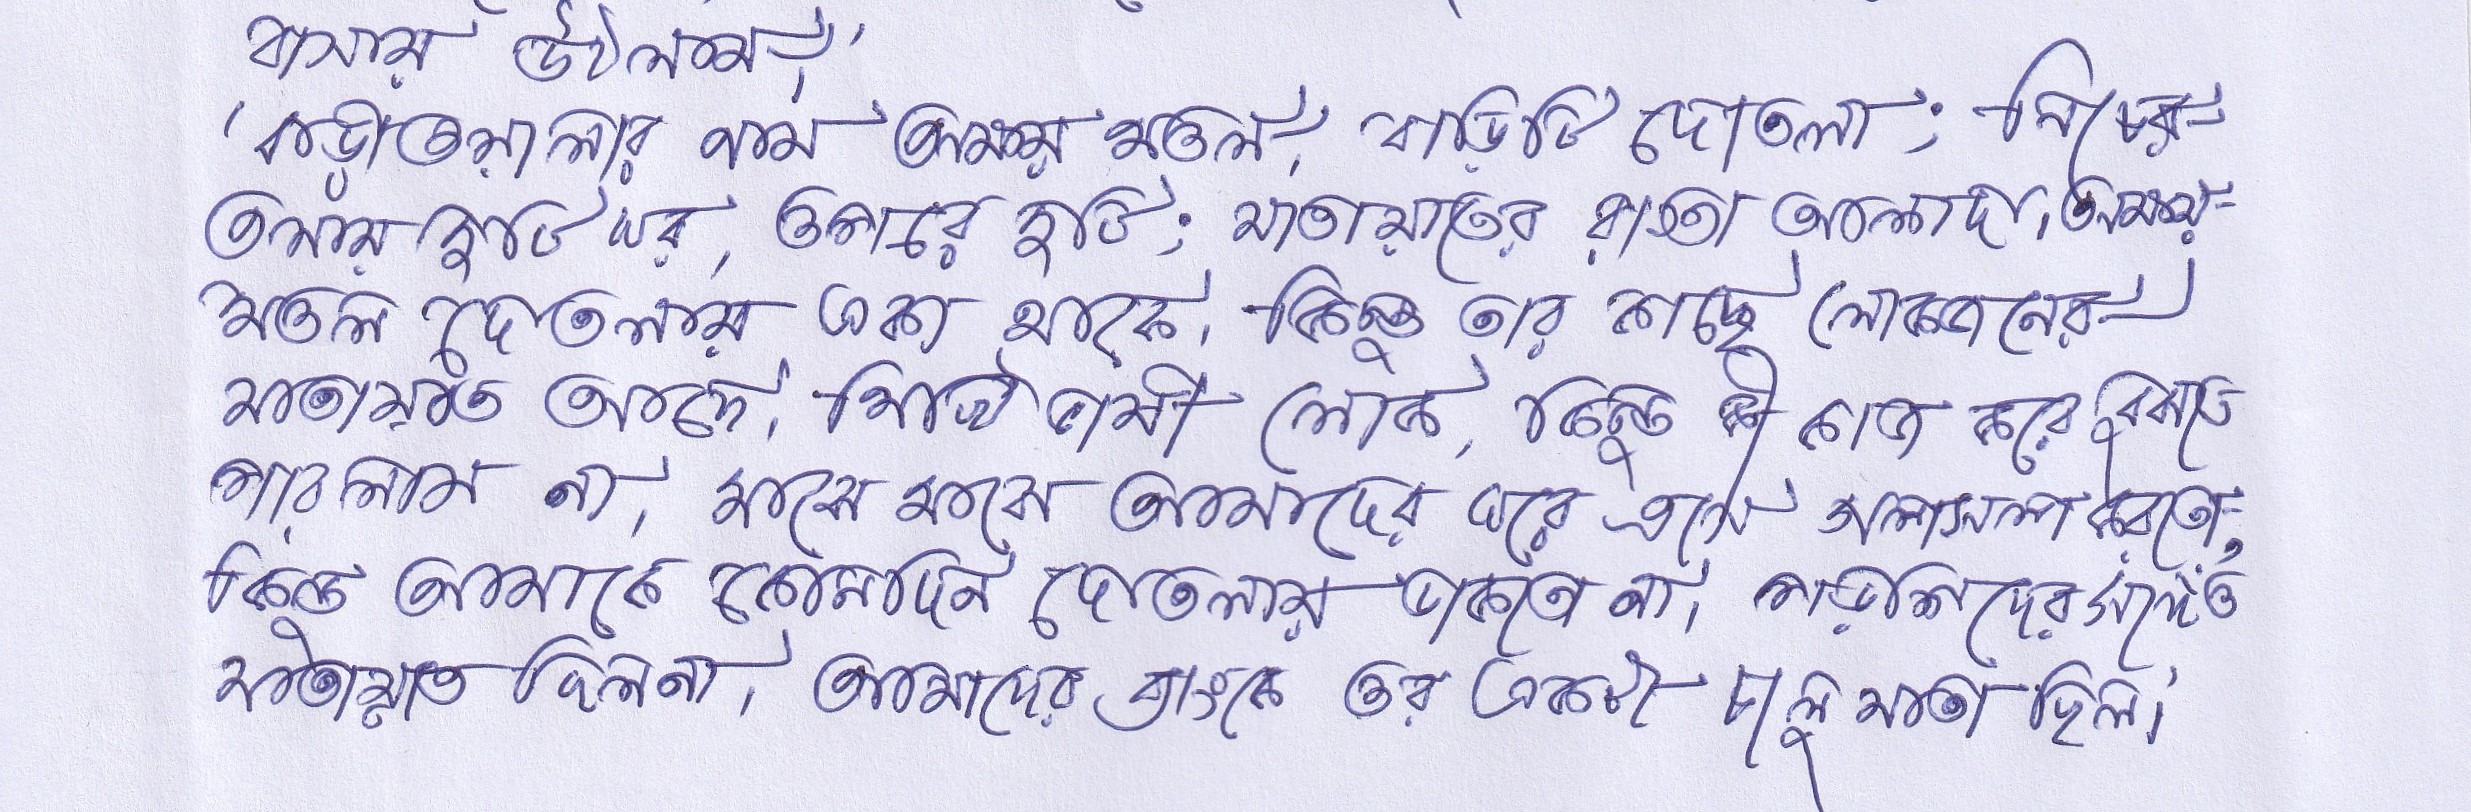 বাসায় উঠলাম।'
'বাড়ীওয়ালার নাম অময় মণ্ডল। বাড়িটি দোতলা; নিচের
তলায় দুটি ঘর, ওপরে দুটি; যাতায়াতের রাস্তা আলাদা। অময়
মণ্ডল দোতলায় একা থাকে। কিন্তু তার কাছে লোকজনের
যাতায়াত আছে। মিষ্টভাষী লোক, কিন্তু কী কাজ করে বুঝতে
পারলাম না। মাঝে মাঝে আমাদের ঘরে এসে গলাসলা করতো,
কিন্তু আমাকে কোনদিন দোতলায় ডাকতো না। পড়শিদের সঙ্গেও
যাতায়াত ছিল না। আমাদের ব্যাংকে ওর একটা চালু খাতা ছিল।'